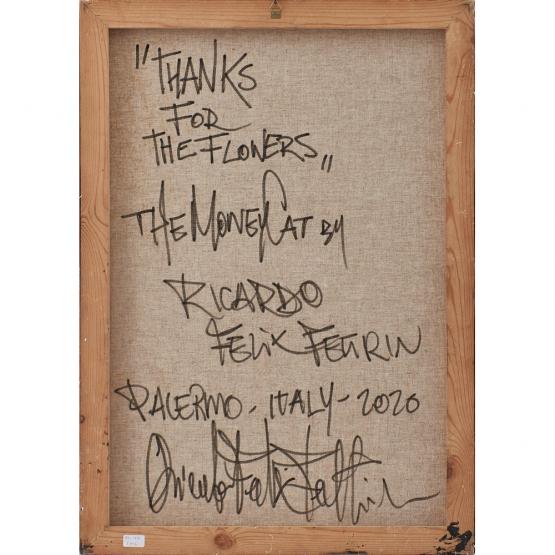 "THANKS
FOR
THE FLOWERS„
THE MONEY CAT BY
RICARDO
FELIX FETTRIN
PALERMO - ITALY - 2020